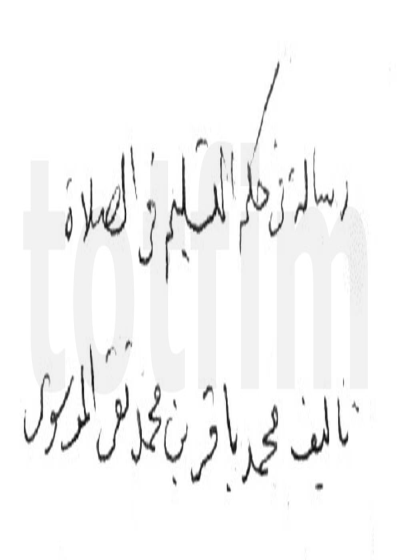 رسالة في حكم التسليم في الصلاة
تأليف محمد باقر بن محمد تقي الموسوي
totfim